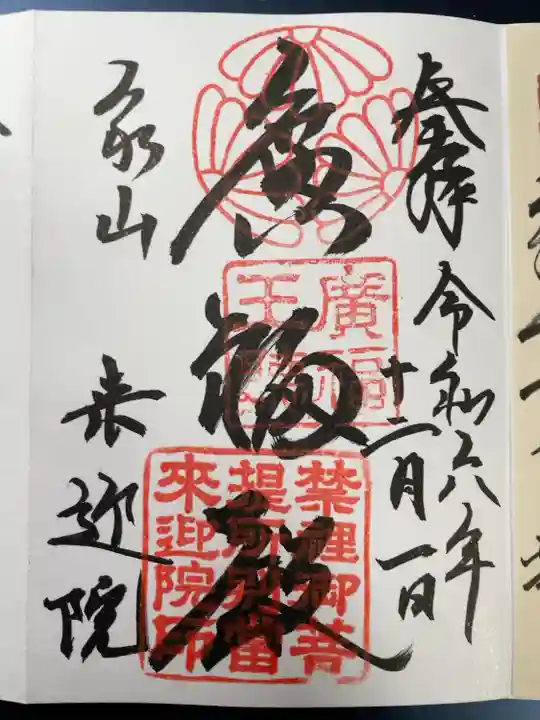 奉拝
令和六年
十二月一日
廣福殿
泉山
来迎院
廣福
禁裡御菩
提所別當
來迎院印